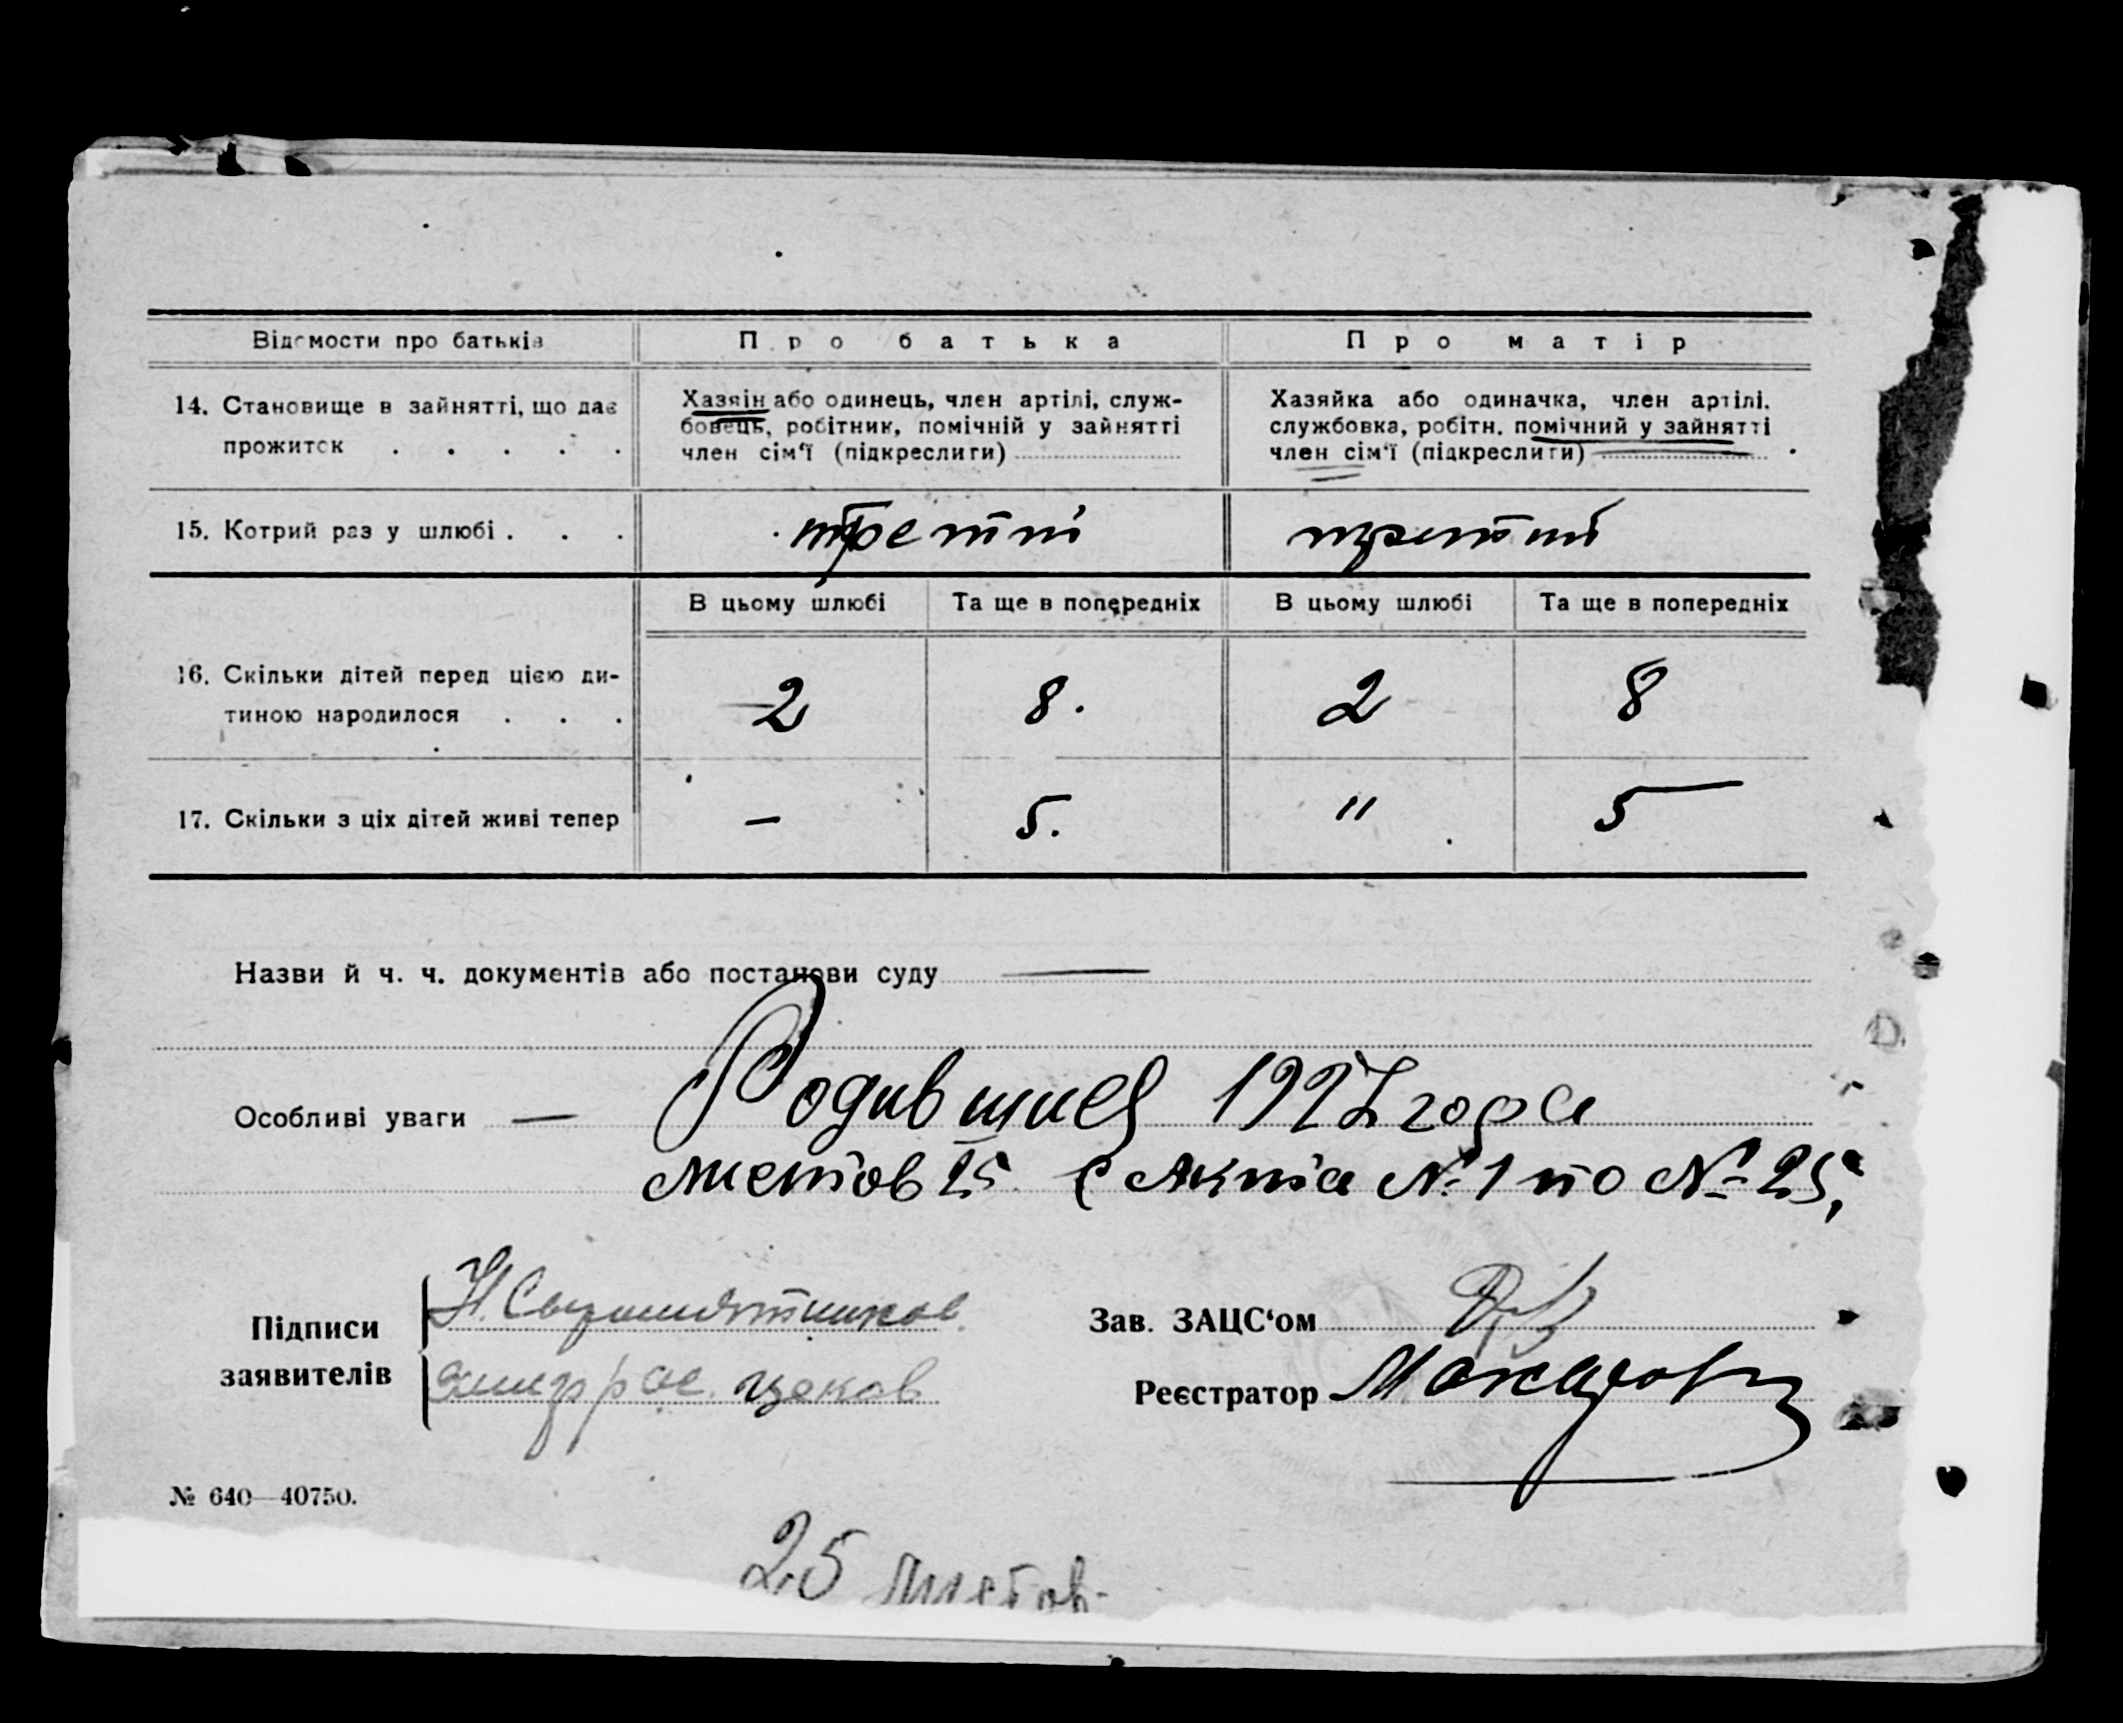 Відомости про батьків
Про батька
Про матір
14. Становище в зайнятті, що дає
прожиток . . . . .
Хазяїн або одинець, член артілі, служ-
бовець, робітник, помічній у зайнятті
член сім‘ї (підкреслити)
Хазяйка або одиначка, член артілі,
службовка, робітн. помічний у зайнятті
член сім‘ї (підкреслити)
15. Котрий раз у шлюбі . . .
третій
В цьому шлюбі
Та ще в попередніх
В цьому шлюбі
Та ще в попередніх
16. Скільки дітей перед цією ди-
тиною народилося . . .
2
8.
2
8
17. Скільки з ціх дітей живі тепер
—
5.
"
5
Назви й ч. ч. документів або постанови суду —
Особливі уваги — Родившиеся 1927 года
листов 25 с Акта № 1 по № 25,
Підписи
заявителів
Н.
Зав. ЗАЦС‘ом
Реєстратор
№ 640—40750.
25 листов